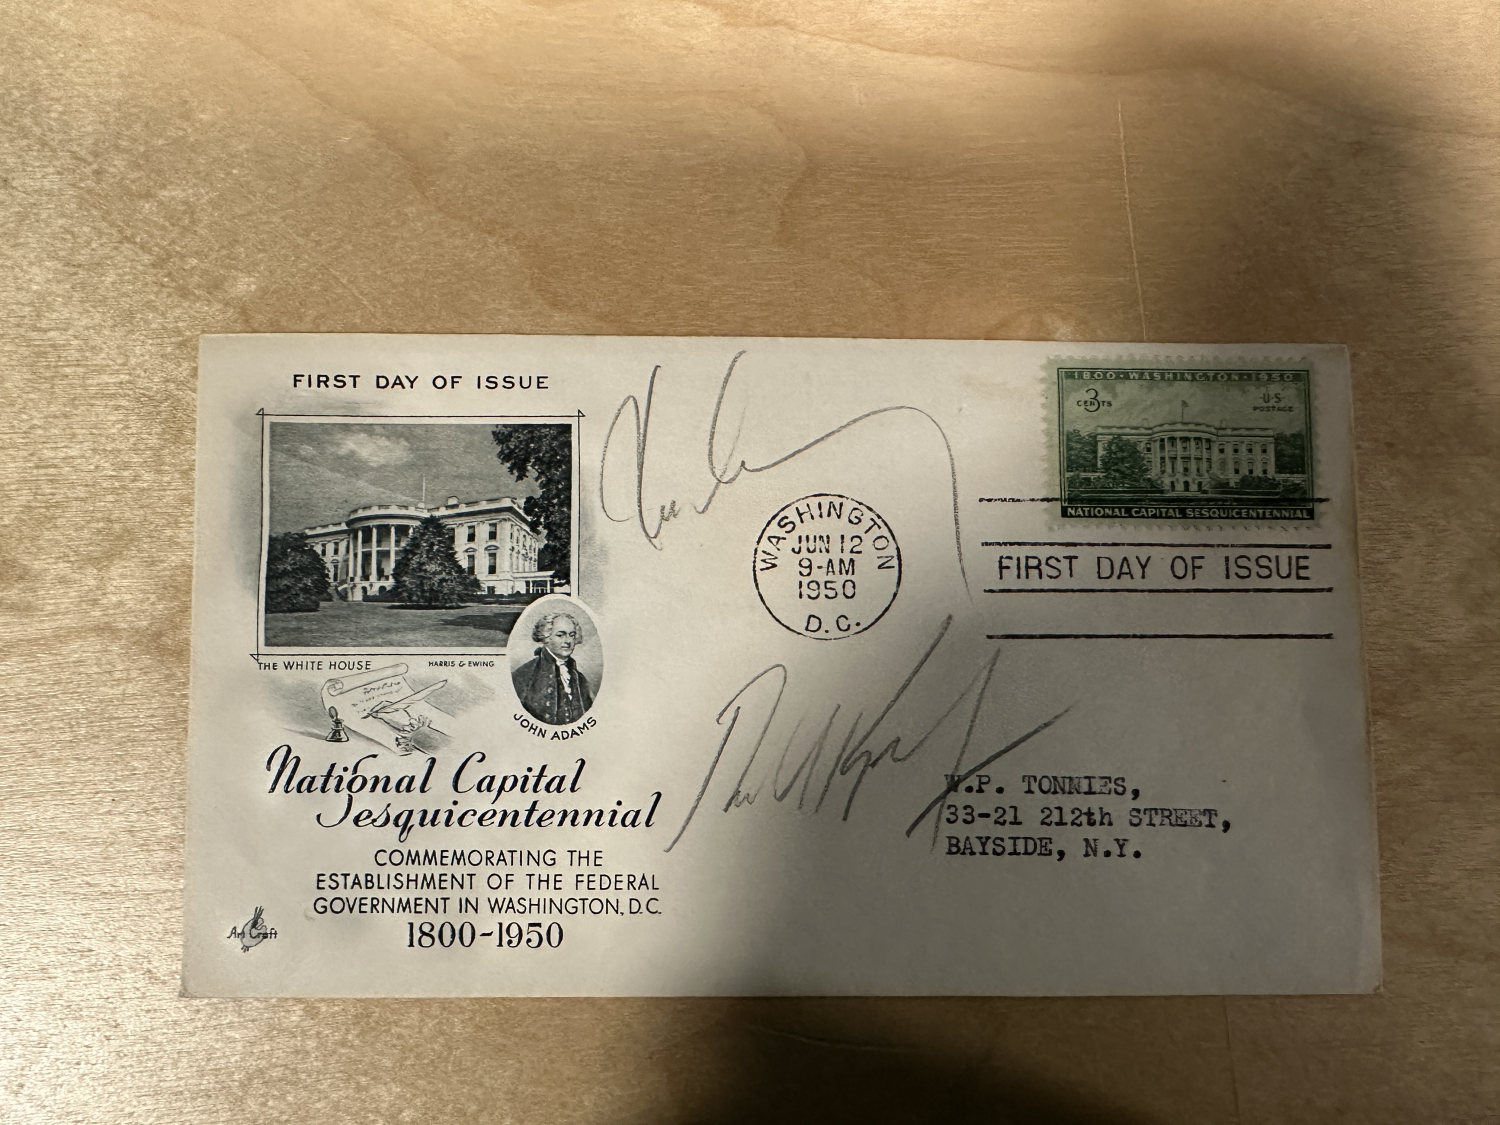 FIRST DAY OF ISSUE
THE WHITE HOUSE
HARRIS & EWING
JOHN ADAMS
National Capital
Sesquicentennial
COMMEMORATING THE
ESTABLISHMENT OF THE FEDERAL
GOVERNMENT IN WASHINGTON, D.C.
1800-1950
Art Craft
WASHINGTON
JUN 12
9-AM
1950
D.C.
1800·WASHINGTON·1950
3
CENTS
U·S·
POSTAGE
NATIONAL CAPITAL SESQUICENTENNIAL
FIRST DAY OF ISSUE
W.P. TONNIES,
33-21 212th STREET,
BAYSIDE, N.Y.